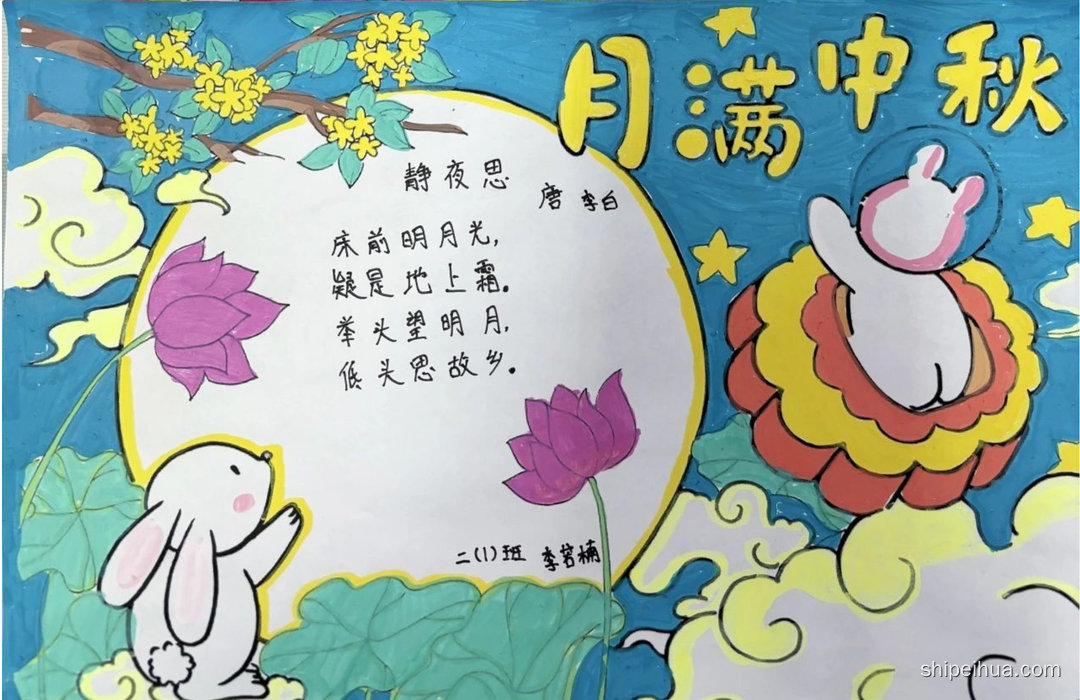 月满中秋
静夜思
唐 李白
床前明月光,
疑是地上霜。
举头望明月,
低头思故乡。
二(1)班 李若楠
shipeihua.com